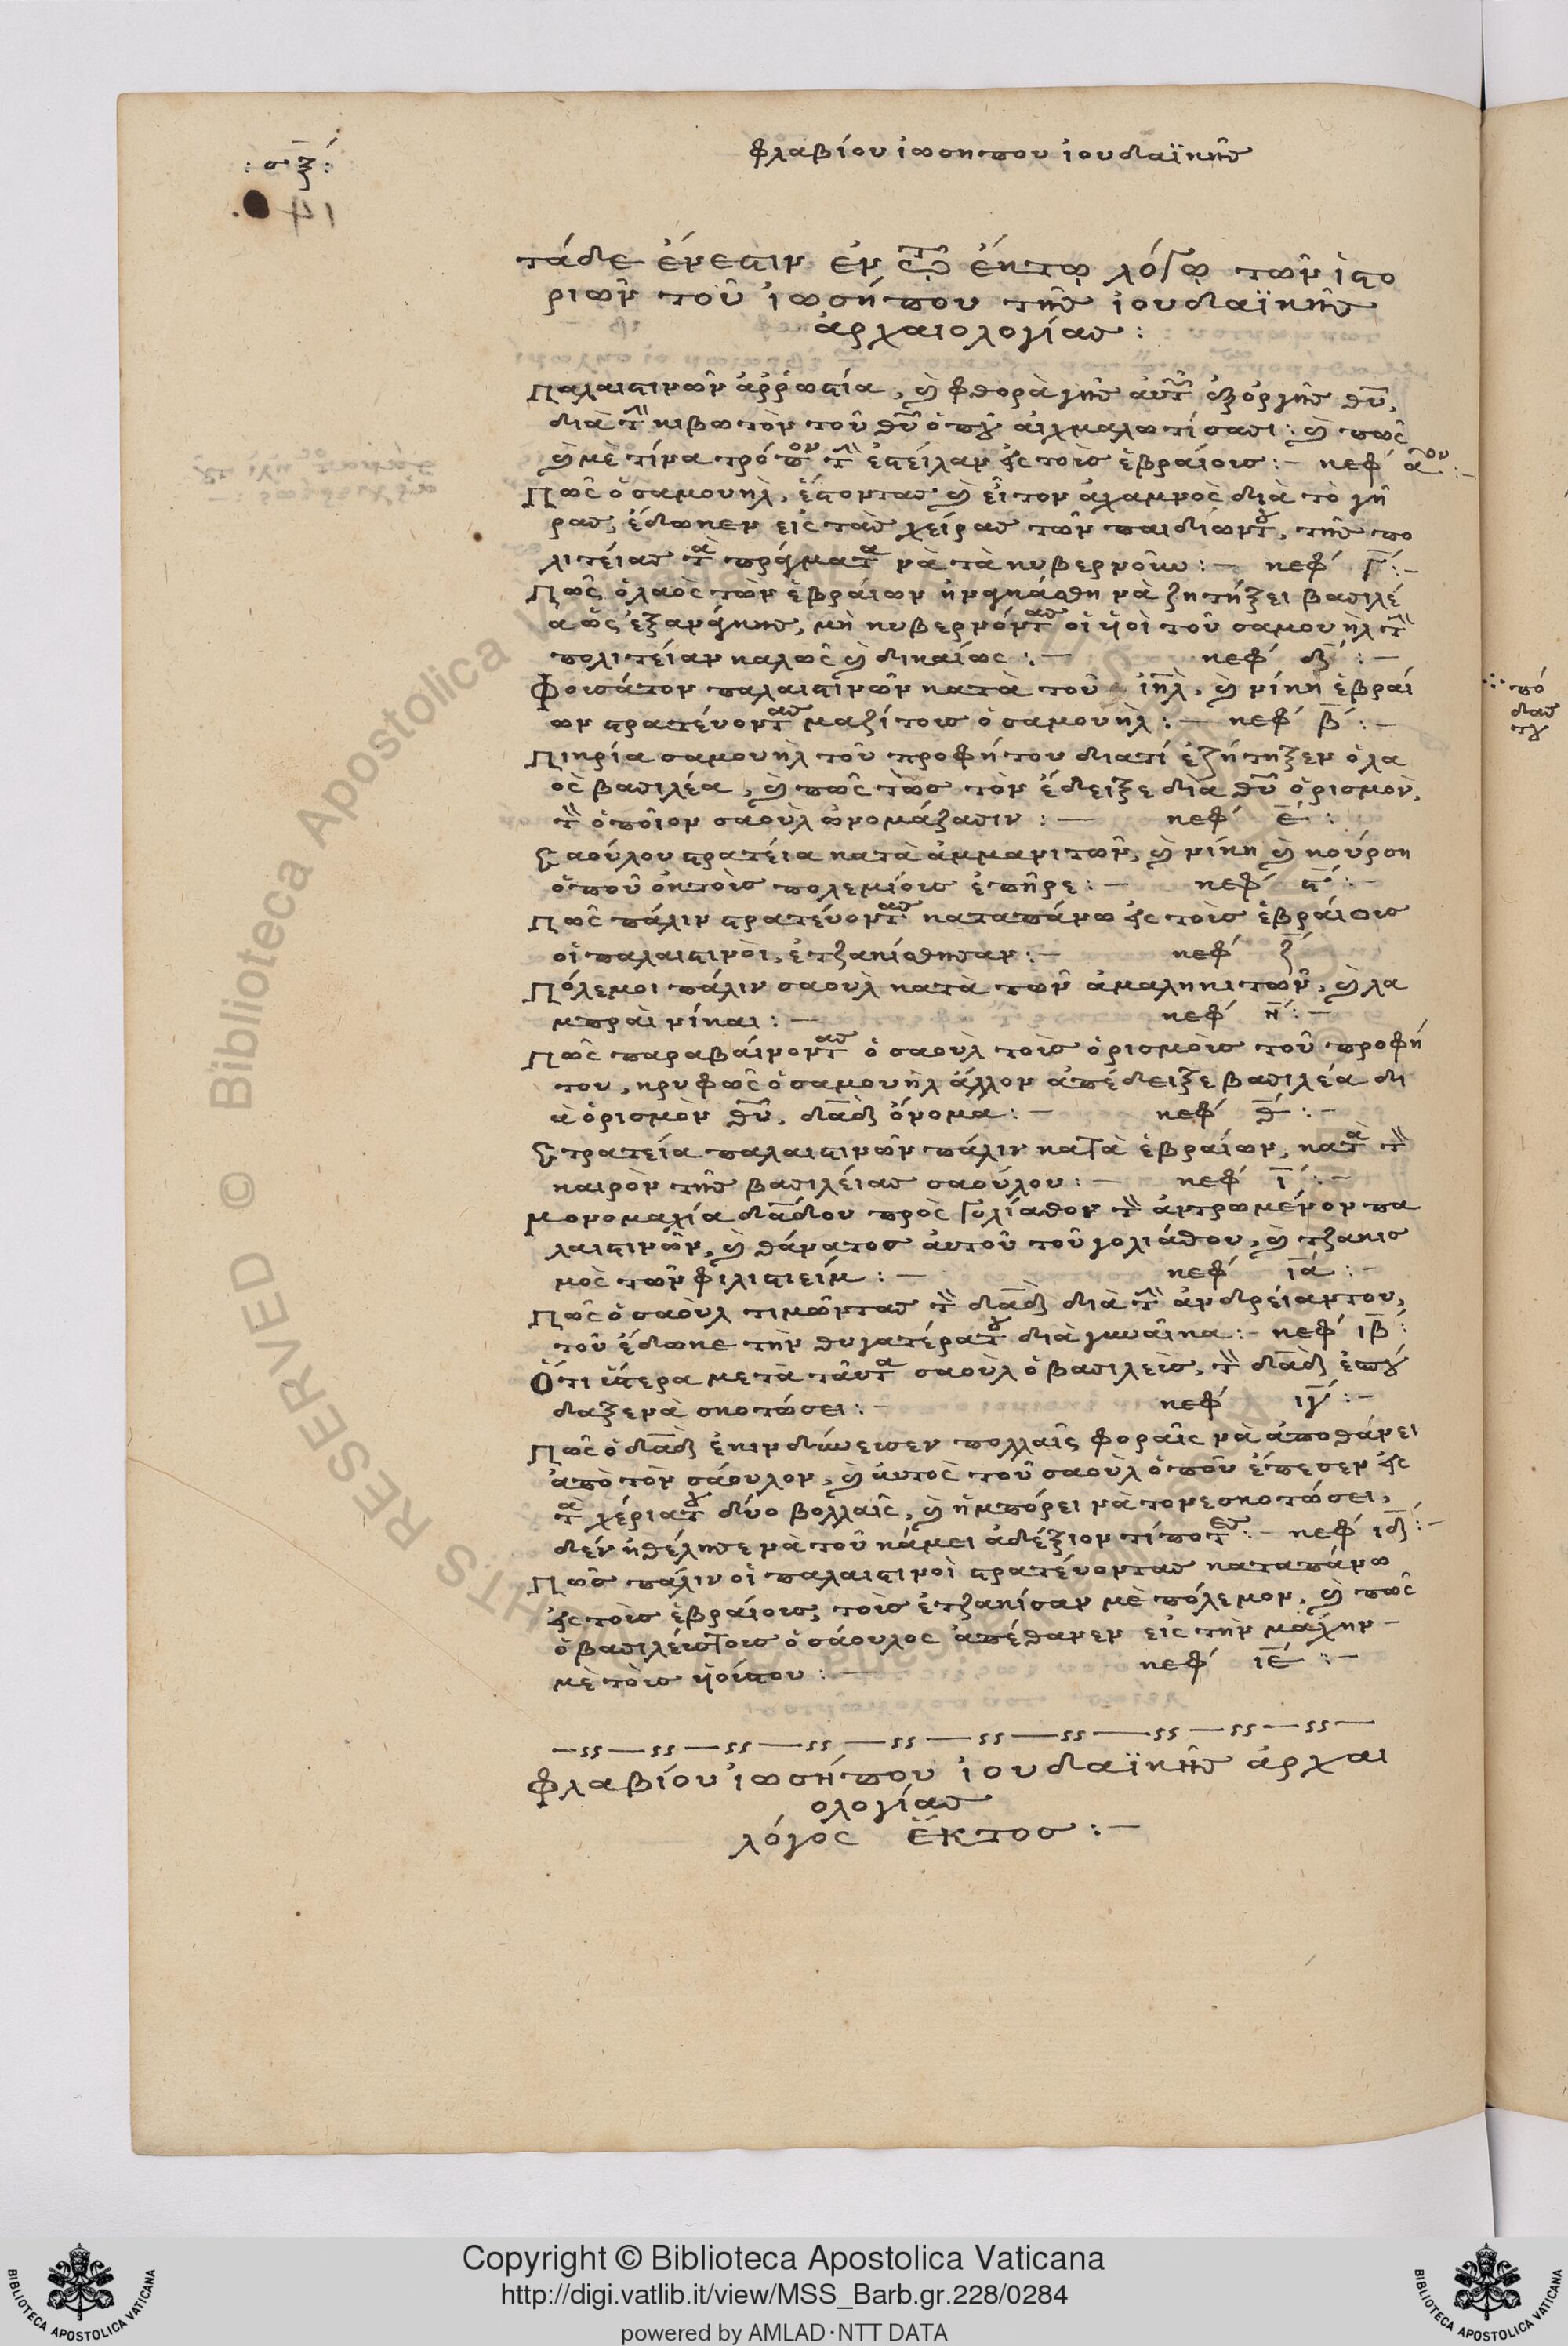 φλαβίου ἰωσηπου ἰουδαϊκῆς
: σξ :
τάδε ἔνεστιν ἐν τῶ ἕκτῳ λόγῳ τῶν ἱστο
ριῶν τοῦ ἰωσήπου τῆς ἰουδαϊκῆς
ἀρχαιολογίας :
Παλαιστινῶν ἀῤῥωστία, καὶ φθορὰ γῆς αὐτ ἐξ ὀργῆς θυ,
διὰ τὴν κιβωτὸν τοῦ θυ ὁποῦ αἰχμαλωτίσασι : καὶ πῶς
καὶ μὲ τίνα τρόπον τὴν ἐστείλαν εἰς τοὺς ἑβραίους :— κεφ αον :—
Πῶς ὁ σαμουηλ, ἔστοντας καὶ εἶτον ἀχαμνὸς διὰ τὸ γῆ
ρας, ἔδωκεν εἰς τὰς χείρας τῶν παιδιῶντου, τῆς πο
λιτείας τὰ πράγματα νὰ τὰ κυβερνοῦν :— κεφ γ :—
Πῶς ὁ λαὸς τῶν ἑβραίων ἠναγκάσθη νὰ ζητήξει βασιλέ
α ὡς ἐξανάγκης, μὴ κυβερνόντας οἱ ὑοὶ τοῦ σαμουὴλ τὴν
πολιτείαν καλῶς καὶ δικαίως :— κεφ δ :—
Φοισάτον παλαιστινῶν κατὰ τοῦ ιηλ, καὶ νίκη ἑβραί
ων στρατέυοντας μαζί τους ὁ σαμουὴλ :— κεφ β :—
Πικρία σαμουὴλ τοῦ προφήτου διατί ἐζήτηξεν ὁ λα
ὸς βασιλέα, καὶ πῶς τως τὸν ἔδειξε διὰ θυ ὁρισμὸν,
τὸν ὁποῖον σαοὺλ ὠνομάζασιν :— κεφ ε :
Σαούλου στρατεία κατὰ ἀμμανιτῶν, καὶ νίκη καὶ κούρση
ὁποῦ ἐκ τοὺς πολεμίους ἐπῆρε :— κεφ ϛ :—
Πῶς πάλιν στρατέυοντας καταπάνω εἰς τοὺς ἑβραίους
οἱ παλαιστινοὶ, ἐτζακίσθησαν :— κεφ ζ
Πόλεμοι πάλιν σαοὺλ κατὰ τῶν ἀμαληκιτῶν, καὶ λα
μπραὶ νίκαι :— κεφ η :—
Πῶς παραβαίνοντας ὁ σαοὺλ τοὺς ὁρισμοὺς τοῦ προφή
του, κρυφῶς ὁ σαμουὴλ ἄλλον ἀπέδειξε βασιλέα δι
ὰ ὁρισμὸν θυ, δαδ ὄνομα :— κεφ θ :—
Στρατεία παλαιστινῶν πάλιν κατὰ ἑβραίων, κατὰ τὸν
καιρὸν τῆς βασιλείας σαούλου :— κεφ ι :—
Μονομαχία δαδου πρὸς γολίαθον τὸν ἀντρωμένον πα
λαιστινῶν, καὶ θάνατος αὐτοῦ τοῦ γολιάθου, καὶ τζακισ
μὸς τῶν φιλιστιείμ :— κεφ ια :—
Πῶς ὁ σαοὺλ τιμῶντας τὸν δαδ διὰ τὴν ἀνδρείαντου,
τοῦ ἔδωκε τὴν θυγατέρατου διὰ γυναῖκα :— κεφ ιβ :
Ὅτι ὕστερα μετὰ ταῦτα σαοὺλ ὁ βασιλεὺς, τὸν δαδ ἐσπού
δαξε νὰ σκοτώσει :— κεφ ιγ :—
Πῶς ὁ δαδ ἐκινδύνευσεν πολλαῖς φοραῖς νὰ ἀποθάνει
ἀπὸ τὸν σάουλον, καὶ αὐτὸς τοῦ σαοὺλ ὁποῦ ἔπεσεν εἰς
τὰ χέριατου δύο βολλαῖς, καὶ ἠμπόρει νὰ τονε σκοτώσει,
δὲν ἠθέλησε νὰ τοῦ κάμει ἀδέξιον τίποτες :— κεφ ιδ :—
Πῶς πάλιν οἱ παλαιστινοὶ στρατέυοντας καταπάνω
εἰς τοὺς ἑβραίους, τοὺς ἐτζακίσαν μὲ πόλεμον, καὶ πῶς
ὁ βασιλεύς τους ὁ σάουλος ἀπέθανεν εἰς τὴν μάχην —
μὲ τοὺς ὑούςτου :— κεφ ιε :—
φλαβίου ἰωσήπου ἰουδαϊκῆς ἀρχαι
ολογίας
λόγος ἕκτος :—
πό
δας
του
© Biblioteca Apostolica Vaticana
RESERVED
Copyright © Biblioteca Apostolica Vaticana
http://digi.vatlib.it/view/MSS_Barb.gr.228/0284
powered by AMLAD·NTT DATA
BIBLIOTECA APOSTOLICA VATICANA
BIBLIOTECA APOSTOLICA VATICANA